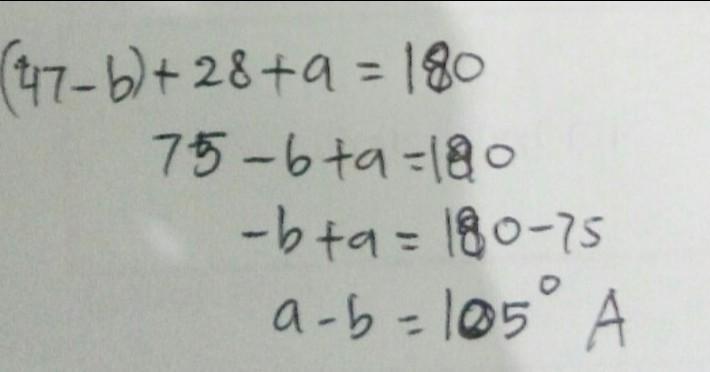 (47-b)+28+a=180
75-b+a=180
-b+a=180-75
a-b=105° A